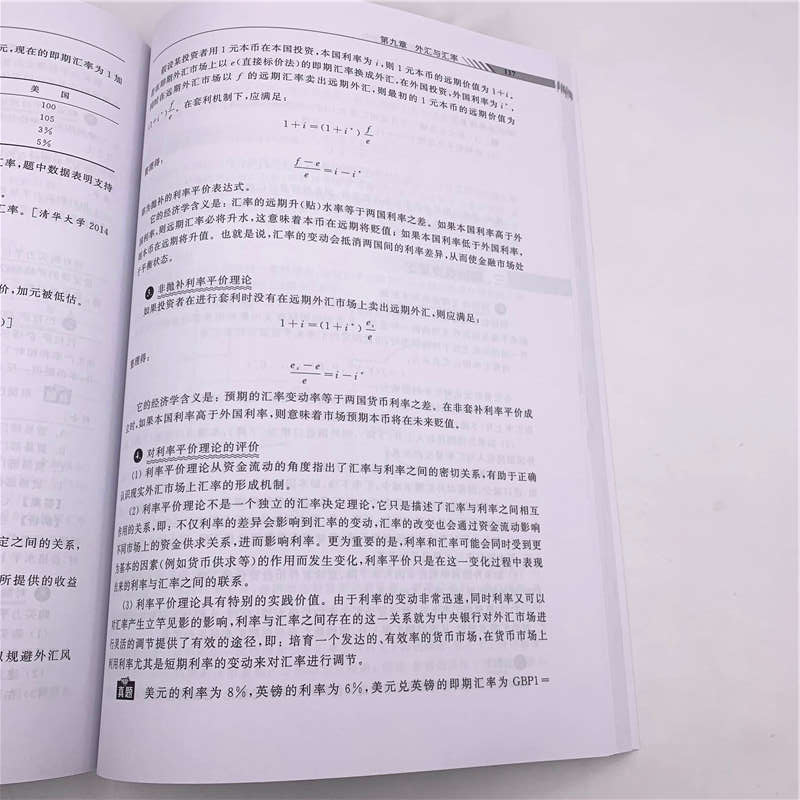 元,现在的即期汇率为1加
美 国
100
105
3%
5%
汇率,题中数据表明支持
汇率。[清华大学2014
价,加元被低估。
)]
定之间的关系,
所提供的收益
以规避外汇风
第九章 外汇与汇率
137
假设某投资者用1元本币在本国投资,本国利率为i,则1元本币的远期价值为1+i。
即期外汇市场上以e(直接标价法)的即期汇率换成外汇,在外国投资,外国利率为i*,
同时在远期外汇市场以f的远期汇率卖出远期外汇,则最初的1元本币的远期价值为
(1+i*)f/e。在套利机制下,应满足:
1+i=(1+i*)f/e
整理得:
(f-e)/e=i-i*
即为抛补的利率平价表达式。
它的经济学含义是:汇率的远期升(贴)水率等于两国利率之差。如果本国利率高于外
国利率,则远期汇率必将升水,这意味着本币在远期将贬值;如果本国利率低于外国利率,
则本币在远期将升值。也就是说,汇率的变动会抵消两国间的利率差异,从而使金融市场处
于平衡状态。
3. 非抛补利率平价理论
如果投资者在进行套利时没有在远期外汇市场上卖出远期外汇,则应满足:
1+i=(1+i*)eₛ/e
整理得:
(eₛ-e)/e=i-i*
它的经济学含义是:预期的汇率变动率等于两国货币利率之差。在非套补利率平价成
立时,如果本国利率高于外国利率,则意味着市场预期本币将在未来贬值。
4. 对利率平价理论的评价
(1)利率平价理论从资金流动的角度指出了汇率与利率之间的密切关系,有助于正确
认识现实外汇市场上汇率的形成机制。
(2)利率平价理论不是一个独立的汇率决定理论,它只是描述了汇率与利率之间相互
作用的关系,即:不仅利率的差异会影响到汇率的变动,汇率的改变也会通过资金流动影响
不同市场上的资金供求关系,进而影响利率。更为重要的是,利率和汇率可能会同时受到更
为基本的因素(例如货币供求等)的作用而发生变化,利率平价只是在这一变化过程中表现
出来的利率与汇率之间的联系。
(3)利率平价理论具有特别的实践价值。由于利率的变动非常迅速,同时利率又可以
对汇率产生立竿见影的影响,利率与汇率之间存在的这一关系就为中央银行对外汇市场进
行灵活的调节提供了有效的途径,即:培育一个发达的、有效率的货币市场,在货币市场上
利用利率尤其是短期利率的变动来对汇率进行调节。
真题 美元的利率为8%,英镑的利率为6%,美元兑英镑的即期汇率为GBP1=